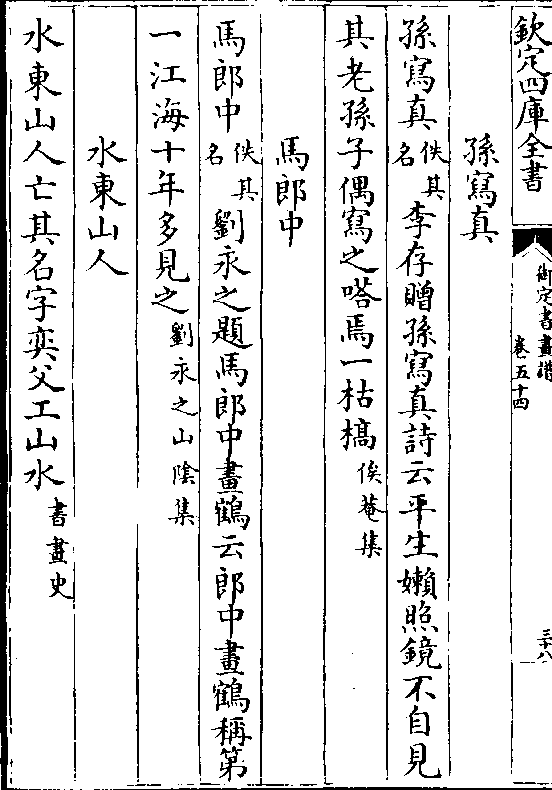 欽定四庫全書
御定書畫譜
卷五十四
三十八
孫寫真
孫寫真佚其名李存贈孫寫真詩云平生嬾照鏡不自見
其老孫子偶寫之嗒焉一枯槁俟菴集
馬郎中
馬郎中佚其名劉永之題馬郎中畫鶴云郎中畫鶴稱第
一江海十年多見之劉永之山陰集
水東山人
水東山人亡其名字奕父工山水書畫史